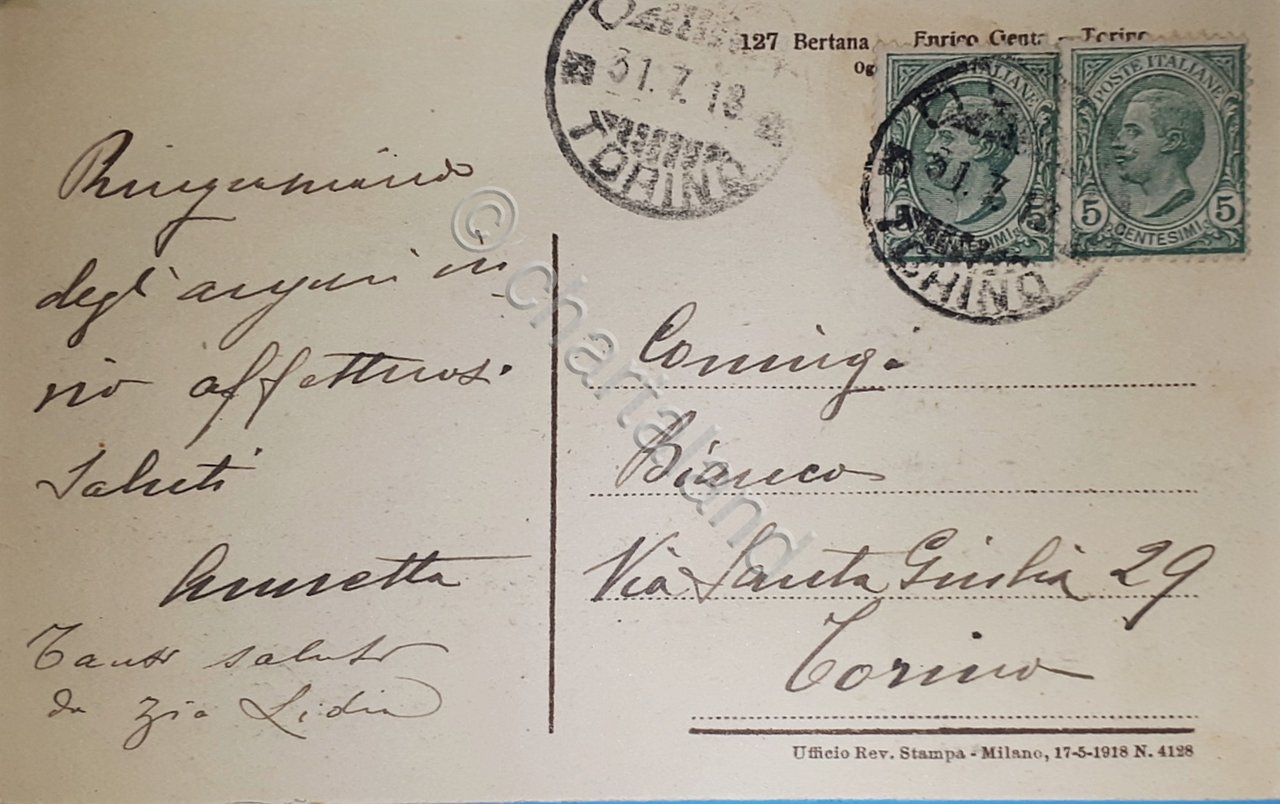 127 Bertana Enrico Genta - Torino
31.7.18
TORINO
POSTE ITALIANE
5 CENTESIMI 5
31.7.18
TORINO
Ringraziando
degl'auguri in
vio affettuosi
saluti
Annetta
Tanti saluti
da zia Lidia
Coniugi
Bianco
Via Santa Giulia 29
Torino
Ufficio Rev. Stampa - Milano, 17-5-1918 N. 4128
© chartaland